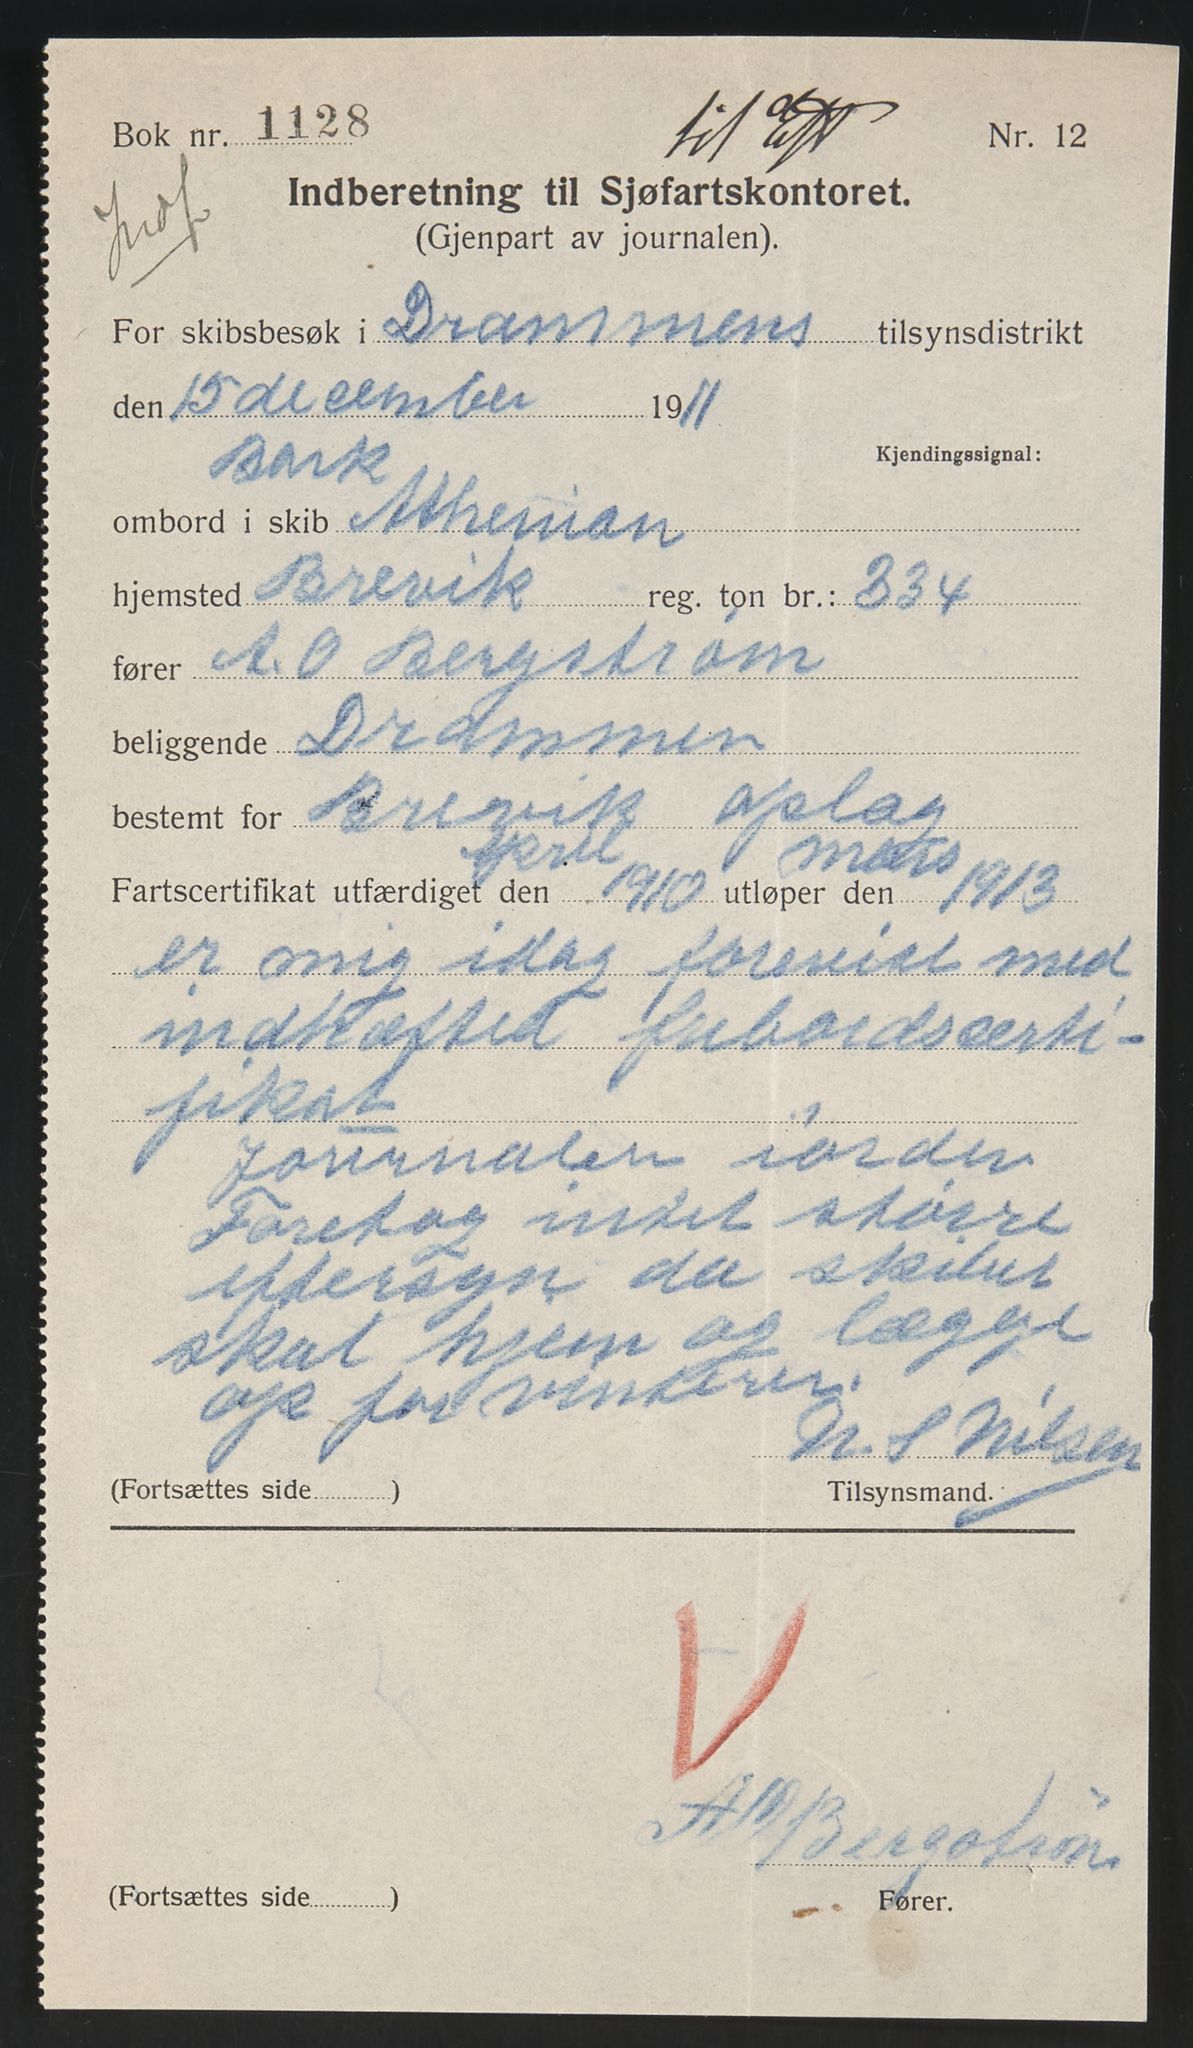 Bok nr. 1128 til Nr. 12
Indberetning til Sjøfartskontoret.
(Gjenpart av journalen).
For skibsbesøk i Drammens tilsynsdistrikt
den 15 december 1911
Bark Kjendingssignal:
ombord i skib Athenian
hjemsted Brevik reg. ton br.: 334
fører A. O Bergström
beliggende Drammen
bestemt for Brevik oplag
april mars
Fartscertifikat utfærdiget den 1910 utløper den 1913
er mig idag forevist med
indhæfted fribordscerti-
fikat
Journalen iorden
Foretog intet større
eftersyn da skibet
skal hjem og lægge
op for vinteren.
N. S Nilsen
(Fortsættes side ) Tilsynsmand.
A O Bergström
(Fortsættes side ) Fører.